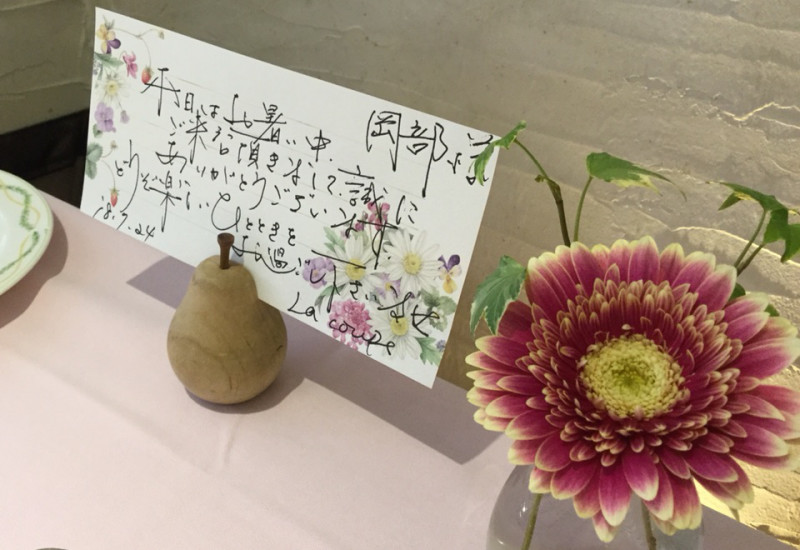 岡部様
本日はお暑い中、
ご来店頂きまして誠に
ありがとうございます。
どうぞ楽しいひとときを
お過し下さいませ
La coupe
'18.7.24